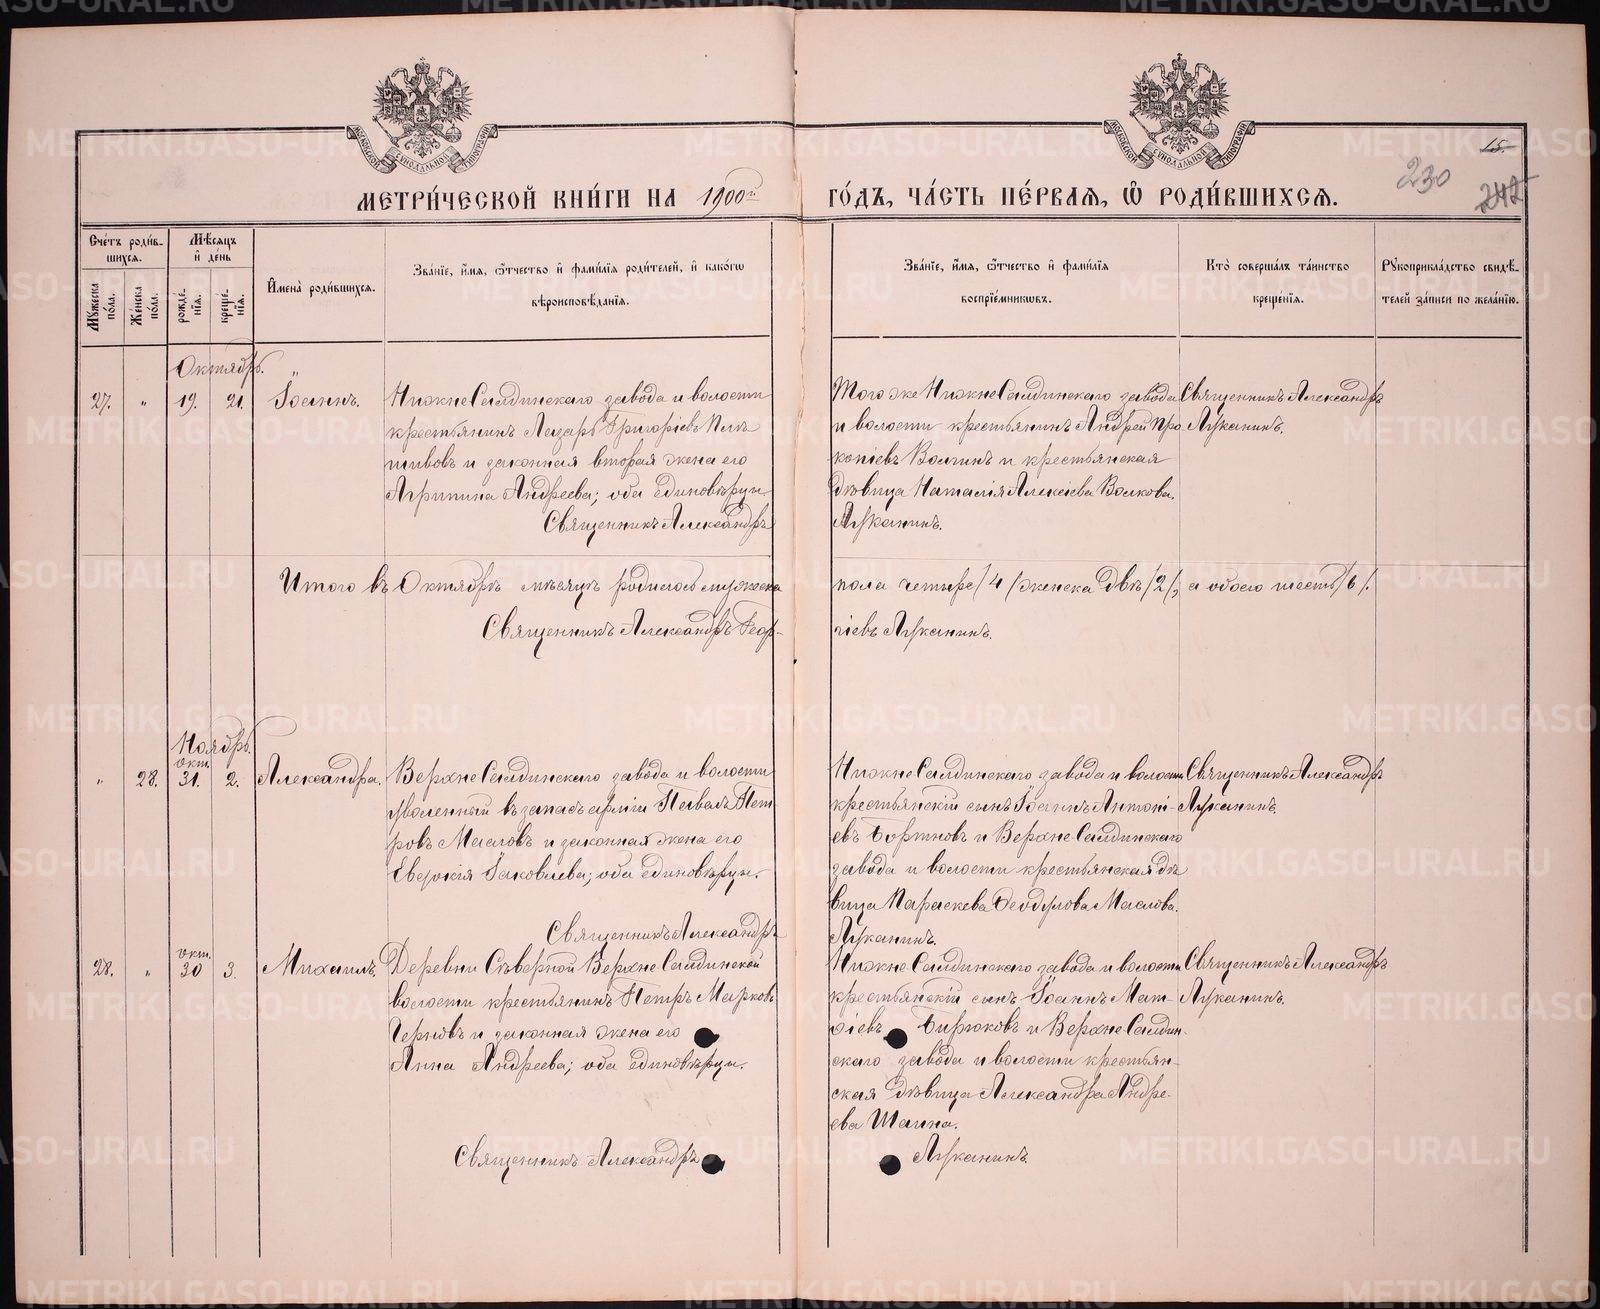 МЕТРИ́ЧЕСКОЙ КНИ́ГИ НА 1900й
ГО́ДЪ, ЧА́СТЬ ПЕ́РВАЯ, Ѡ РОДИ́ВШИХСЯ.
15.
230
242
Сче́тъ роди́в-
шихся.
Мѣ́сяцъ
и де́нь
Мꙋ́жеска
по́ла.
Же́нска
по́ла.
рожде́-
нїя.
креще́-
нїя.
И́мена роди́вшихся.
Зва́нїе, и́мя, ѻ҆́тчество и фами́лїя роди́телей, и како́гѡ
вѣроисповѣ́данїя.
Зва́нїе, и́мя, ѻ҆́тчество и фами́лїя
воспрїе́мниковъ.
Кто̀ соверша́лъ та́инство
креще́нїя.
Рꙋкоприкла́дство свидѣ́-
телей за́писи по жела́нїю.
Октябрь.
27. " 19. 21. Іоаннъ.
НижнеСалдинскаго завода и волости
крестьянинъ Лазарь Григоріевъ
и законная вторая жена его
Агрипина Андреева; оба единовѣрцы.
Священникъ Александръ
Тогоже НижнеСалдинскаго завода
и волости крестьянинъ Андрей Про
копіевъ Волгинъ и крестьянская
дѣвица Наталія Алексіева Волкова.
Луканинъ.
Священникъ Александръ
Луканинъ.
Итого въ Октябрѣ мѣсяцѣ родилось мужеска
пола четыре /4/ женска двѣ /2/, а обоего шесть /6/.
Священникъ Александръ Геор-
гіевъ Луканинъ.
Ноябрь.
окт.
" 28. 31. 2. Александра.
ВерхнеСалдинскаго завода и волости
уволенный въ запасъ арміи Павелъ Пет
ровъ Масловъ и законная жена его
Евдокія Іаковлева; оба единовѣрцы.
Священникъ Александръ
НижнеСалдинскаго завода и волости
крестьянскій сынъ Іоаннъ Антоні-
евъ и ВерхнеСалдинскаго
завода и волости крестьянская дѣ
вица Параскева Ѳеодулова Маслова.
Луканинъ.
Священникъ Александръ
Луканинъ.
окт.
28. " 30 3. Михаилъ.
Деревни Сѣверной ВерхнеСалдинской
волости крестьянинъ Петръ Марковъ
Черновъ и законная жена его
Анна Андреева; оба единовѣрцы.
Священникъ Александръ
НижнеСалдинскаго завода и волости
крестьянскій сынъ Іоаннъ Мат-
ѳіевъ Бирюковъ и ВерхнеСалдин-
скаго завода и волости крестьян-
ская дѣвица Александра Андре-
ева Шаина.
Луканинъ.
Священникъ Александръ
Луканинъ.
METRIKI.GASO-URAL.RU